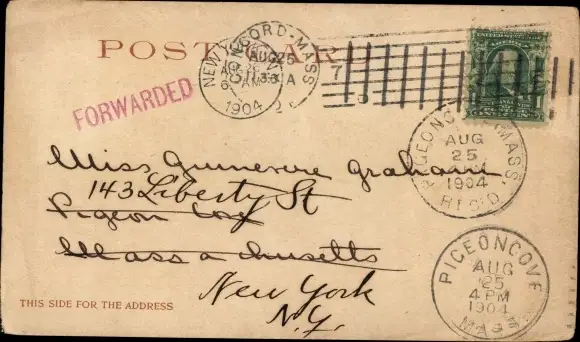 POST CARD
NEW YORK
CONCORD MASS
AUG 25
1904
7
FORWARDED
UNITED STATES
FRANKLIN
1
PIGEON COVE MASS.
AUG
25
1904
REC'D.
Miss Guinevere Graham
143 Liberty St
Pigeon Cove
Massachusetts
New York
N.Y.
PIGEONCOVE
AUG
25
4 PM
1904
MASS.
THIS SIDE FOR THE ADDRESS